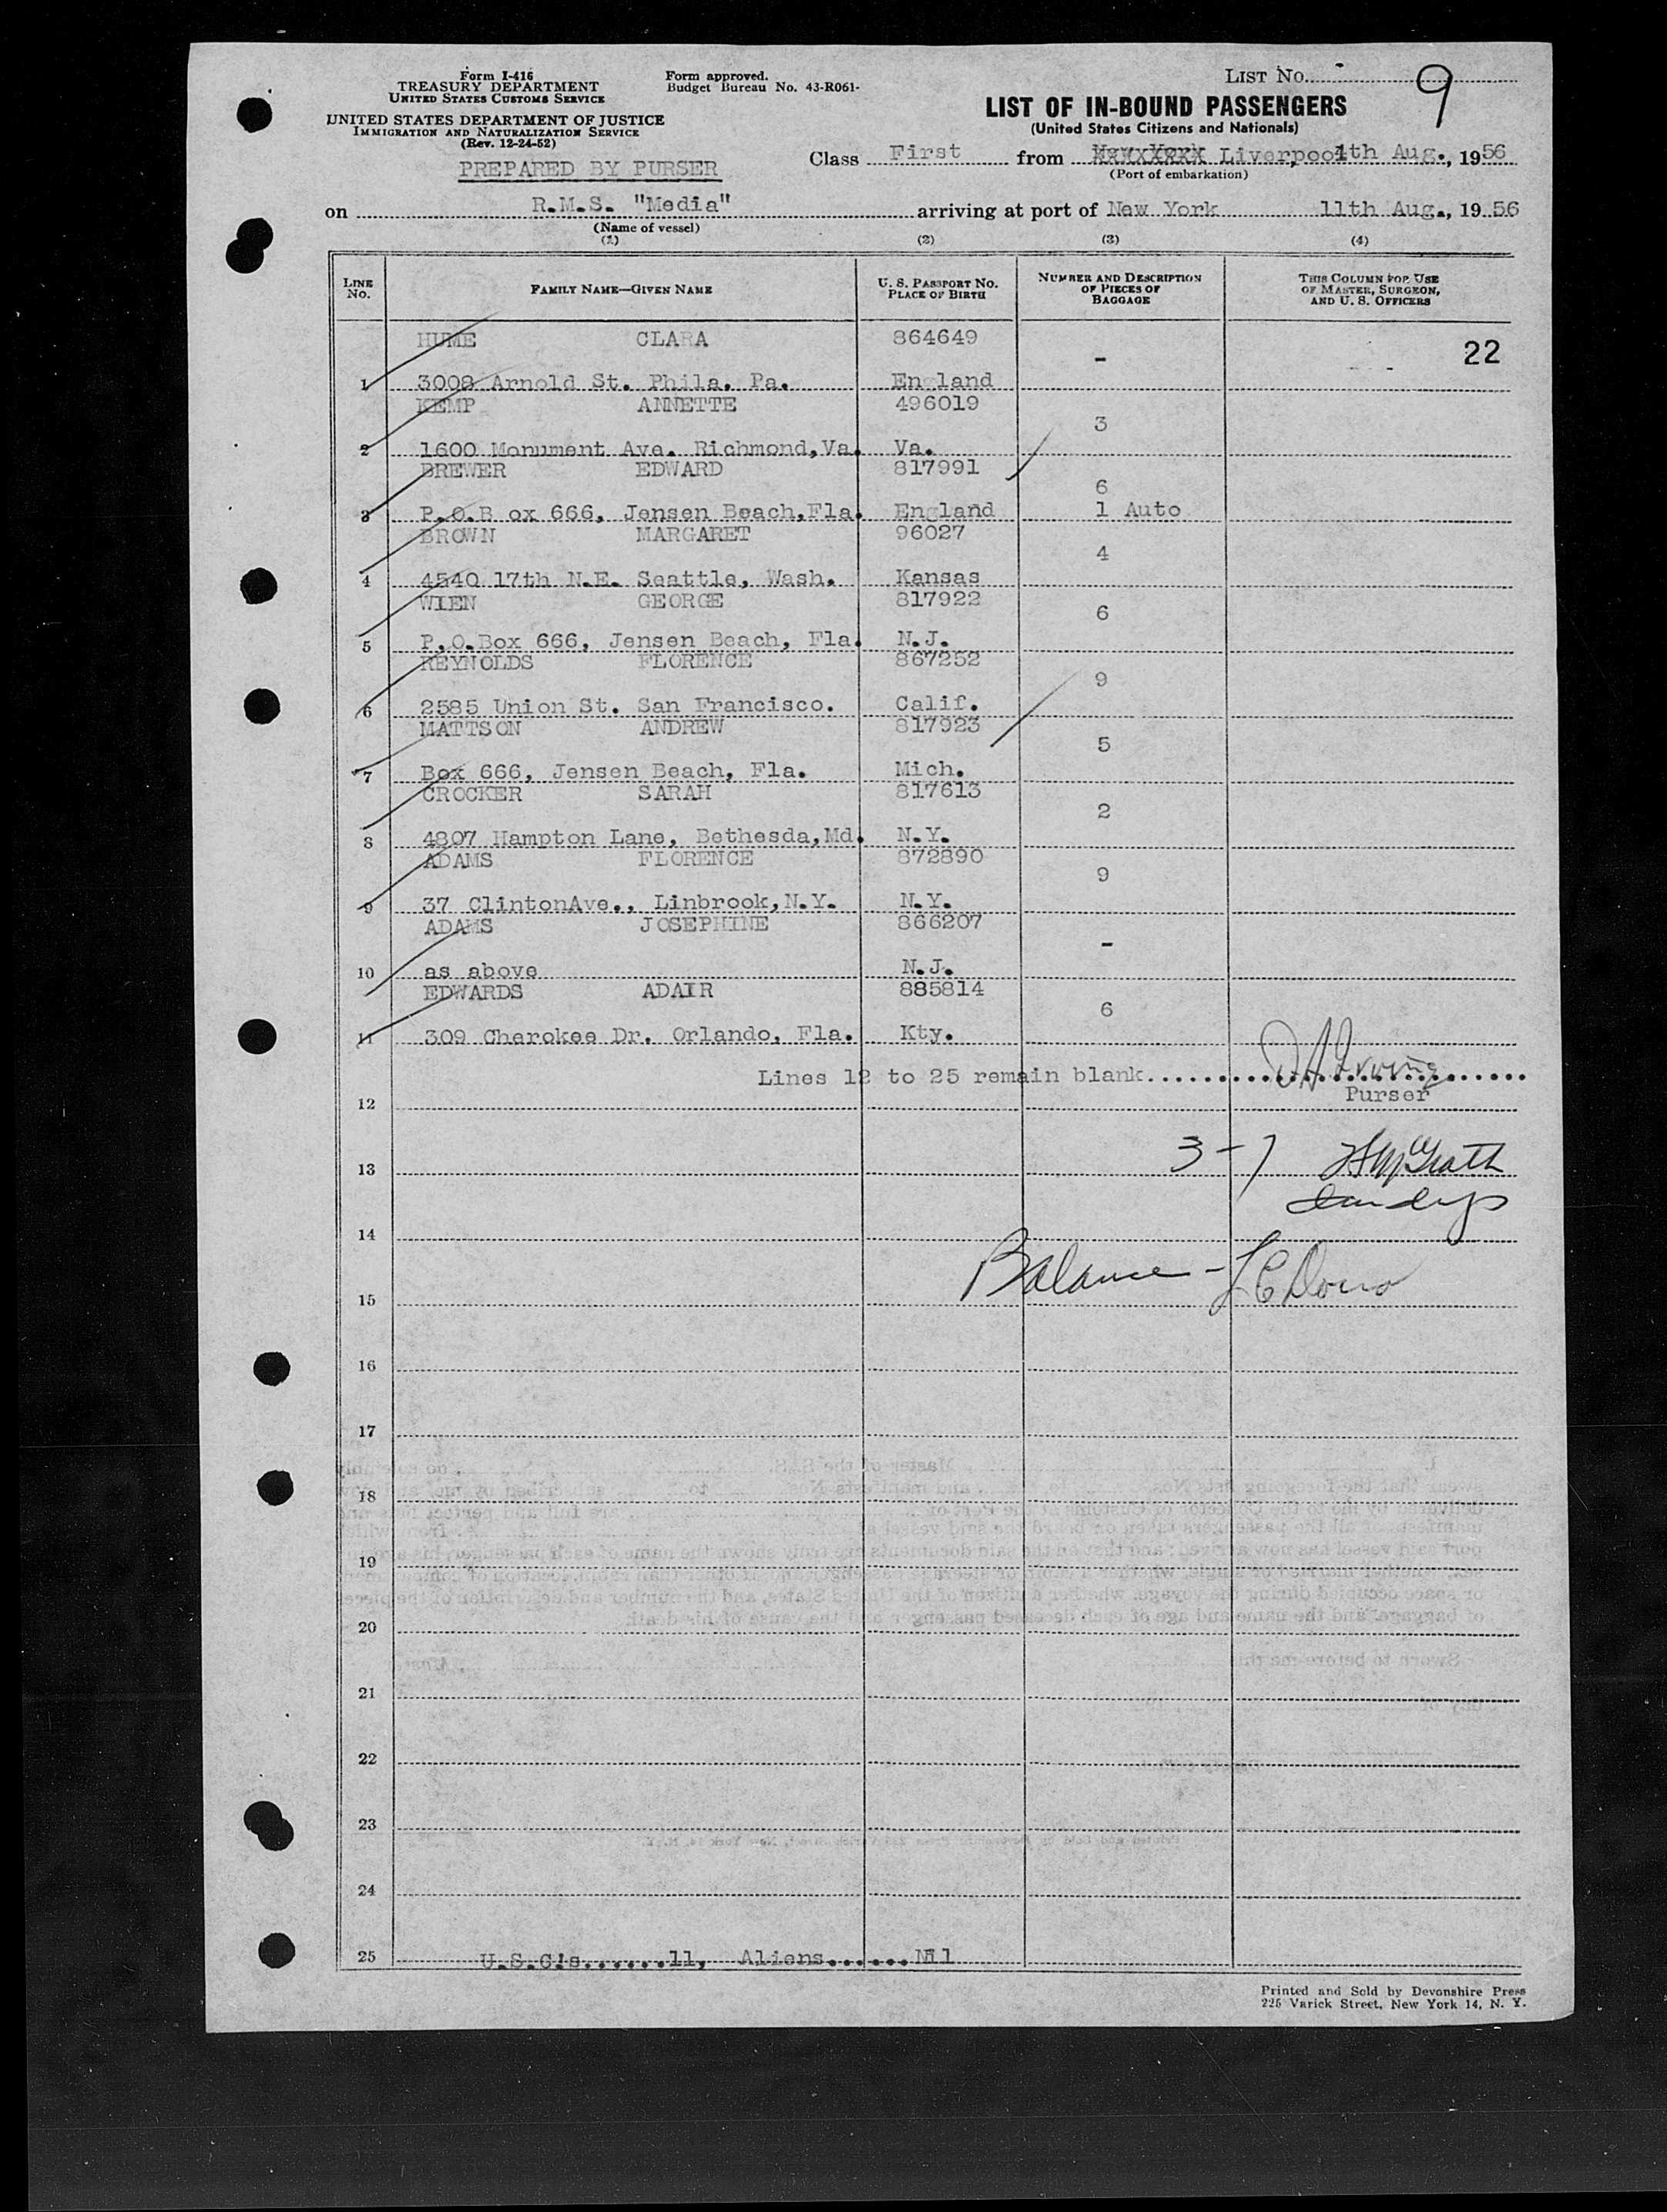 Form I-416
TREASURY DEPARTMENT
UNITED STATES CUSTOMS SERVICE
UNITED STATES DEPARTMENT OF JUSTICE
IMMIGRATION AND NATURALIZATION SERVICE
(Rev. 12-24-52)
PREPARED BY PURSER
Form approved.
Budget Bureau No. 43-R061-
LIST NO. 9
LIST OF IN-BOUND PASSENGERS
(United States Citizens and Nationals)
Class First from New York Liverpool 4th Aug., 1956
(Port of embarkation)
on R.M.S. "Media" arriving at port of New York 11th Aug., 1956
(Name of vessel)
(1) (2) (3) (4)
LINE NO. FAMILY NAME—GIVEN NAME U. S. PASSPORT NO. PLACE OF BIRTH NUMBER AND DESCRIPTION OF PIECES OF BAGGAGE THIS COLUMN FOR USE OF MASTER, SURGEON, AND U. S. OFFICERS
HUME CLARA 864649 - 22
1 3008 Arnold St. Phila. Pa. En land
KEMP ANNETTE 496019 3
2 1600 Monument Ave. Richmond,Va. Va.
BREWER EDWARD 817991 6
3 P.O.B ox 666, Jensen Beach,Fla. En land 1 Auto
BROWN MARGARET 96027 4
4 4540 17th N.E. Seattle, Wash. Kansas
WIEN GEORGE 817922 6
5 P.O.Box 666, Jensen Beach, Fla. N.J.
REYNOLDS FLORENCE 867252 9
6 2585 Union St. San Francisco. Calif.
MATTSON ANDREW 817923 5
7 Box 666, Jensen Beach, Fla. Mich.
CROCKER SARAH 817613 2
8 4807 Hampton Lane, Bethesda,Md. N.Y.
ADAMS FLORENCE 872890 9
9 37 ClintonAve., Linbrook,N.Y. N.Y.
ADAMS JOSEPHINE 866207 -
10 as above N.J.
EDWARDS ADAIR 885814 6
11 309 Cherokee Dr. Orlando, Fla. Kty.
Lines 12 to 25 remain blank..............................
Purser
12
13 3-7 McGrath
14
Balance -
15
16
17
18
19
20
21
22
23
24
25 U.S.C's.......11, Aliens......Nil
Printed and Sold by Devonshire Press
225 Varick Street, New York 14, N. Y.